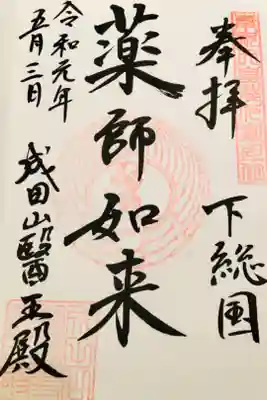 奉拝
下総国
薬師如来
令和元年
五月三日
成田山醫王殿